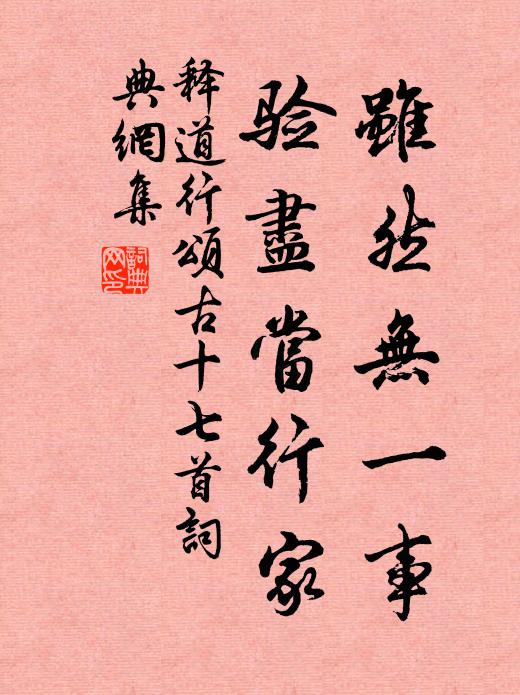 雖然無一事
验盡當行家
释道行頌古十七首詞
典網集
詞典網印